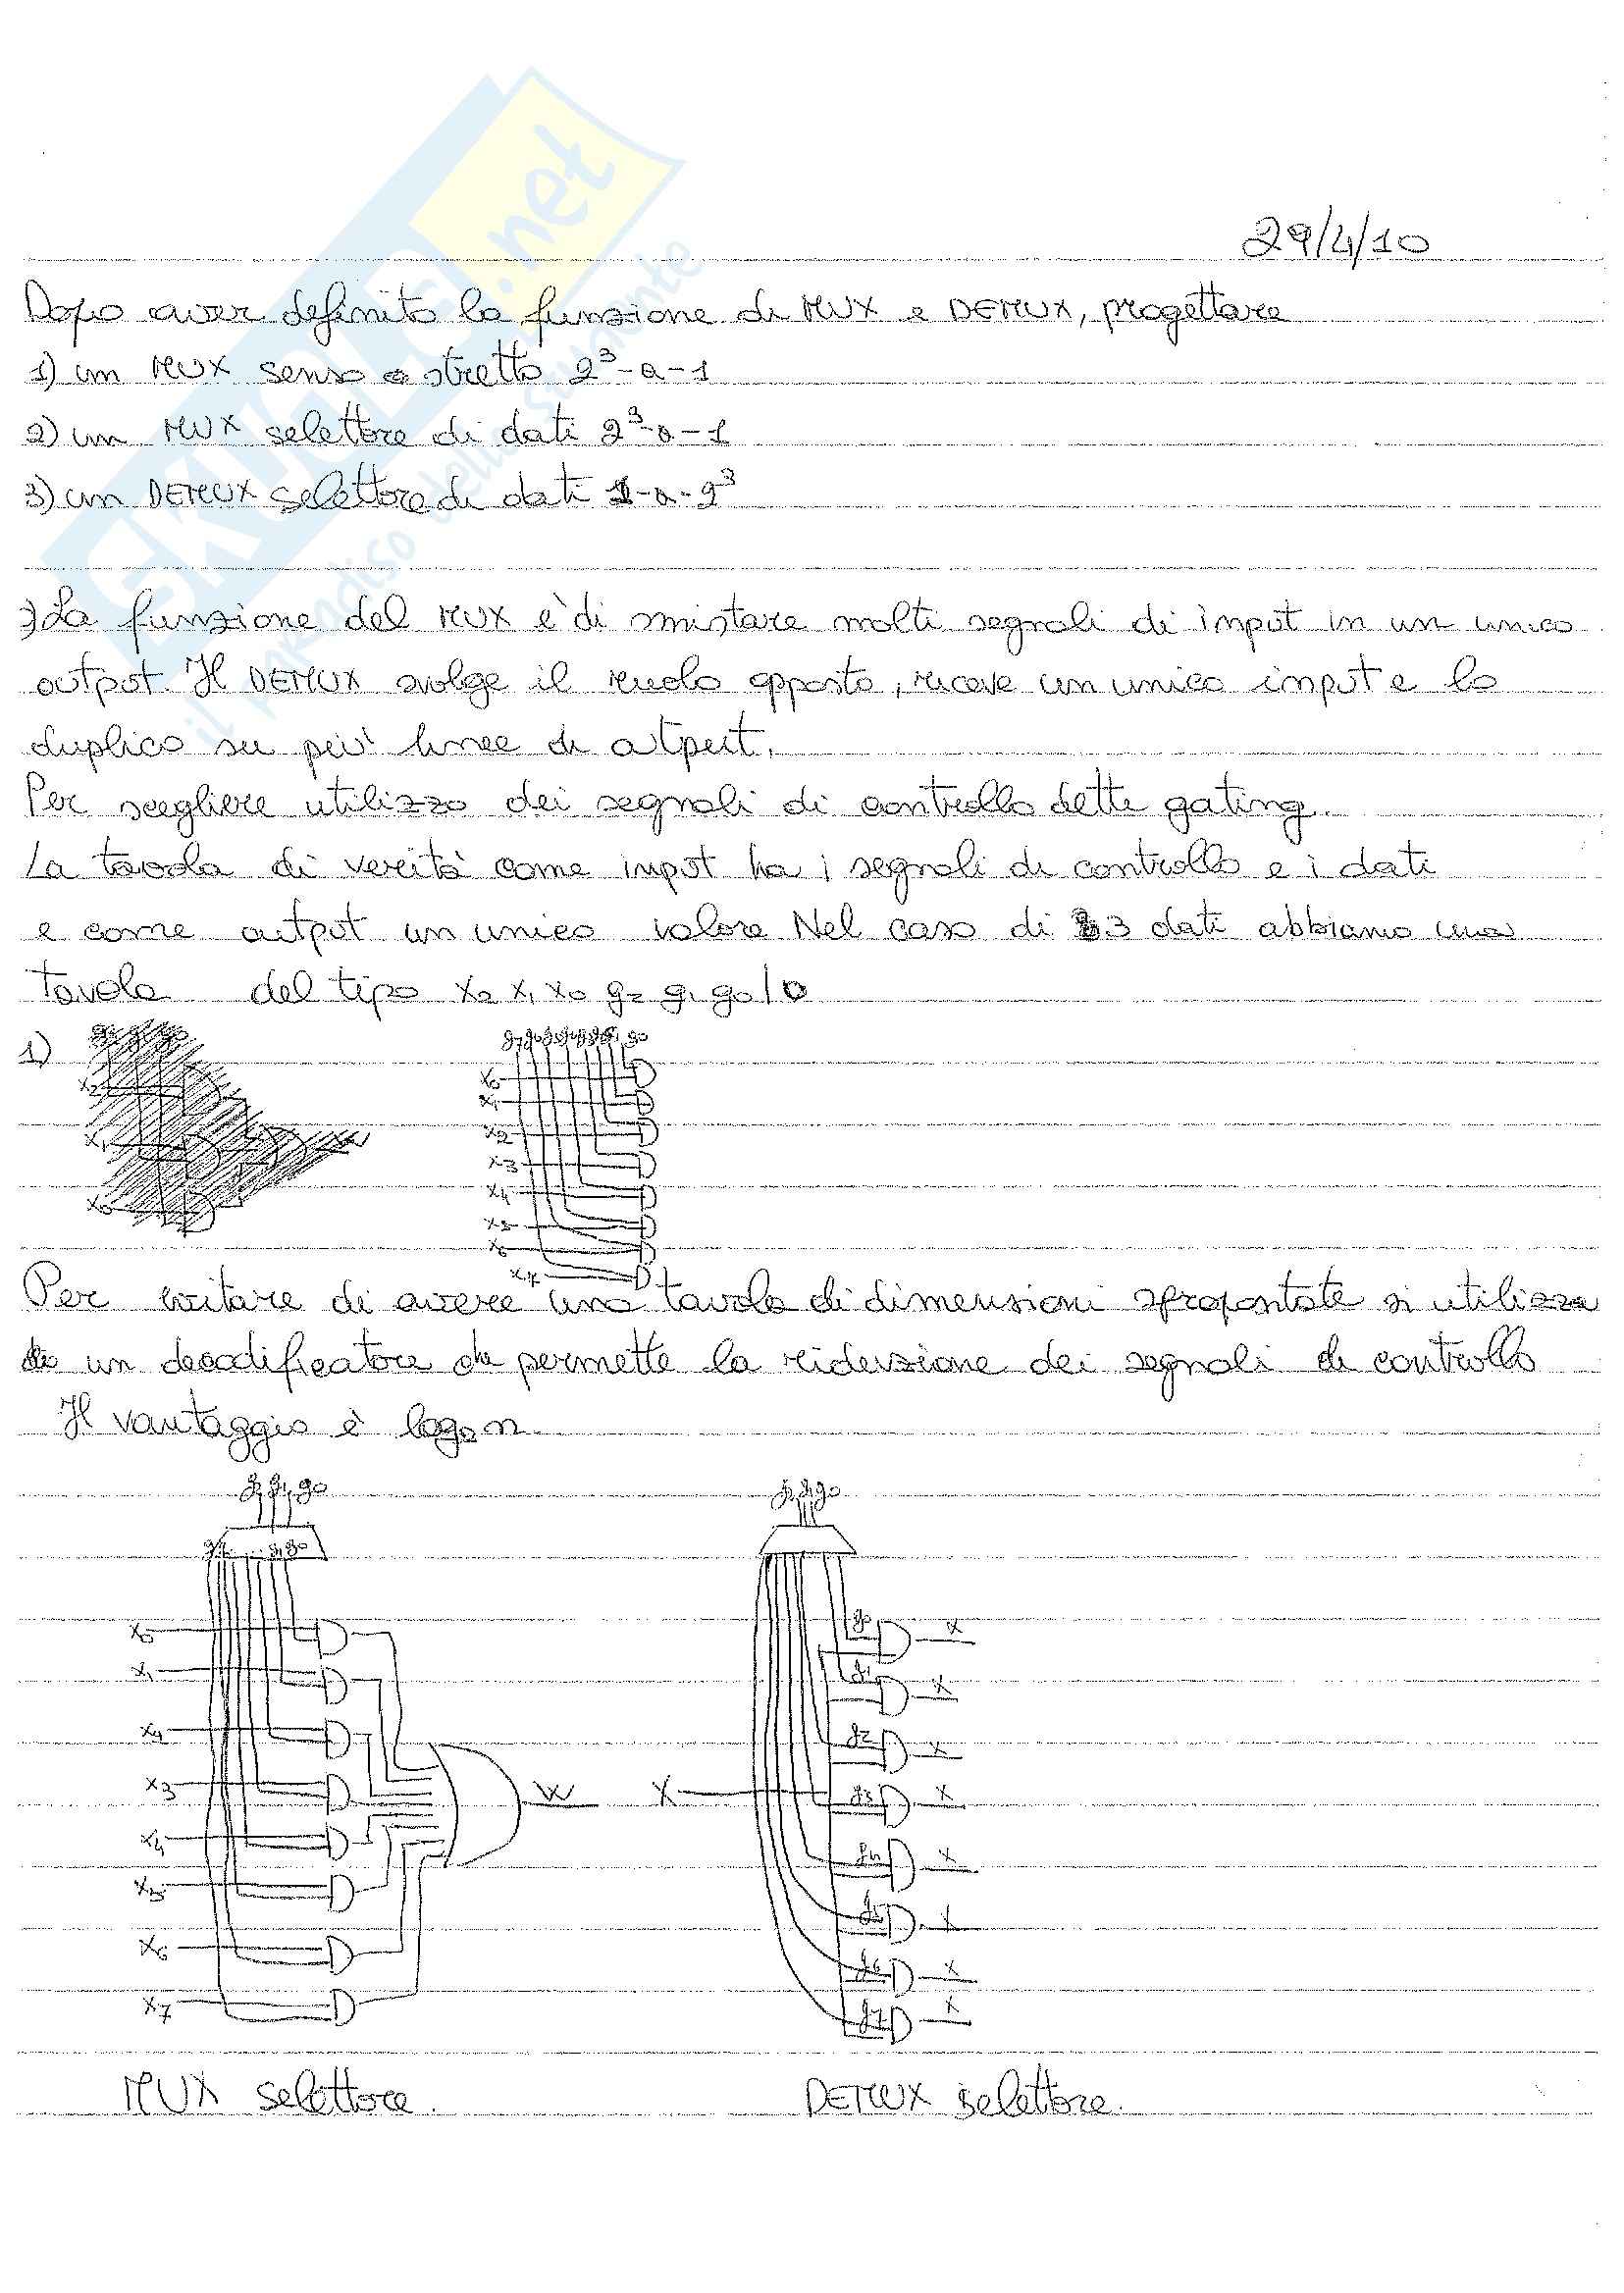 SKUOLA.net
il paradiso dello studente
29/4/10
Dopo aver definito la funzione di MUX e DEMUX, progettare
1) un MUX senso stretto 2³-a-1
2) un MUX selettore di dati 2³-a-1
3) un DEMUX selettore di dati 1-a-2³
La funzione del MUX è di smistare molti segnali di input in un unico
output. Il DEMUX svolge il ruolo opposto, riceve un unico input e lo
duplica su più linee di otput.
Per scegliere utilizzo dei segnali di controllo dette gating.
La tavola di verità come input ha i segnali di controllo e i dati
e come output un unico valore Nel caso di 3 dati abbiamo una
tavola del tipo x₂ x₁ x₀ g₂ g₁ g₀ | 0
1)
g7 g6 g5 g4 g3 g2 g1 g0
x0
x1
x2
x3
x4
x5
x6
x7
Per evitare di avere una tavola di dimensioni spropositate si utilizza
un decodificatore che permette la riduzione dei segnali di controllo
Il vantaggio è log₂ n.
g2 g1 g0
g7 ... g1 g0
x0
x1
x4
x3
x4
x5
x6
x7
W
g2 g1 g0
X
g0 x
g1 x
g2 x
g3 x
g4 x
g5 x
g6 x
g7 x
MUX selettore.
DEMUX selettore.